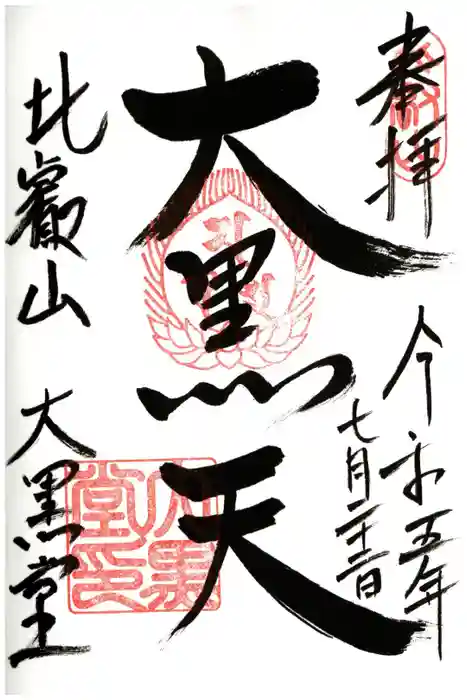 奉拝
令和五年
七月二十三日
大黒天
比叡山
大黒堂
大黒堂印